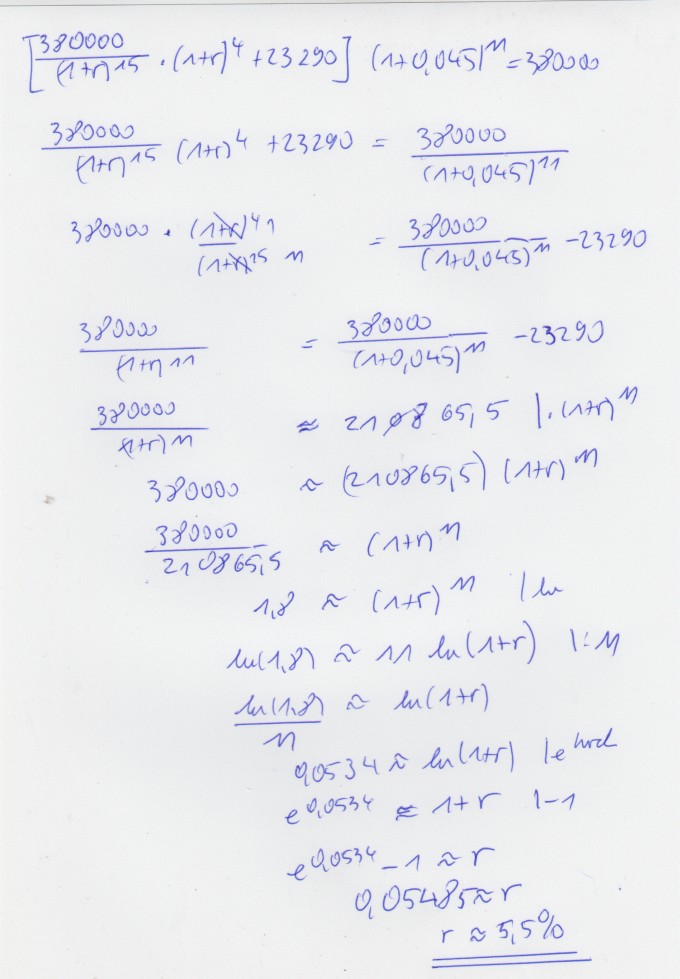 [380000/(1+r)^15 · (1+r)^4 + 23290] (1+0,045)^11 = 380000
380000/(1+r)^15 (1+r)^4 + 23290 = 380000/(1+0,045)^11
380000 · (1+r)^4 1/(1+r)^15 11 = 380000/(1+0,045)^11 - 23290
380000/(1+r)^11 = 380000/(1+0,045)^11 - 23290
380000/(1+r)^11 ≈ 210865,5 | · (1+r)^11
380000 ≈ (210865,5) (1+r)^11
380000/210865,5 ≈ (1+r)^11
1,8 ≈ (1+r)^11 | ln
ln(1,8) ≈ 11 ln(1+r) | : 11
ln(1,8)/11 ≈ ln(1+r)
0,0534 ≈ ln(1+r) | e^hoch
e^0,0534 ≈ 1+r | -1
e^0,0534 - 1 ≈ r
0,05485 ≈ r
r ≈ 5,5%